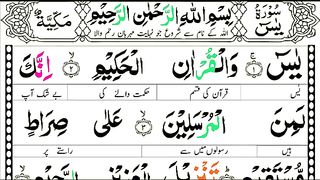 سُورَةُ يٰسٓ بِسْمِ اللّٰهِ الرَّحْمٰنِ الرَّحِيْمِ مَكِّيَّةٌ
اللہ کے نام سے شروع جو نہایت مہربان رحم والا
يٰسٓ ۚ ۱ وَالْقُرْاٰنِ الْحَكِيْمِ ۙ ۲ اِنَّكَ
یٰس قرآن کی قسم حکمت والے کی بے شک آپ
لَمِنَ الْمُرْسَلِيْنَ ۙ ۳ عَلٰى صِرَاطٍ
ہیں رسولوں میں سے پر راستے
مُّسْتَقِيْمٍ تَنْزِيْلَ الْعَزِيْزِ الرَّحِيْمِ